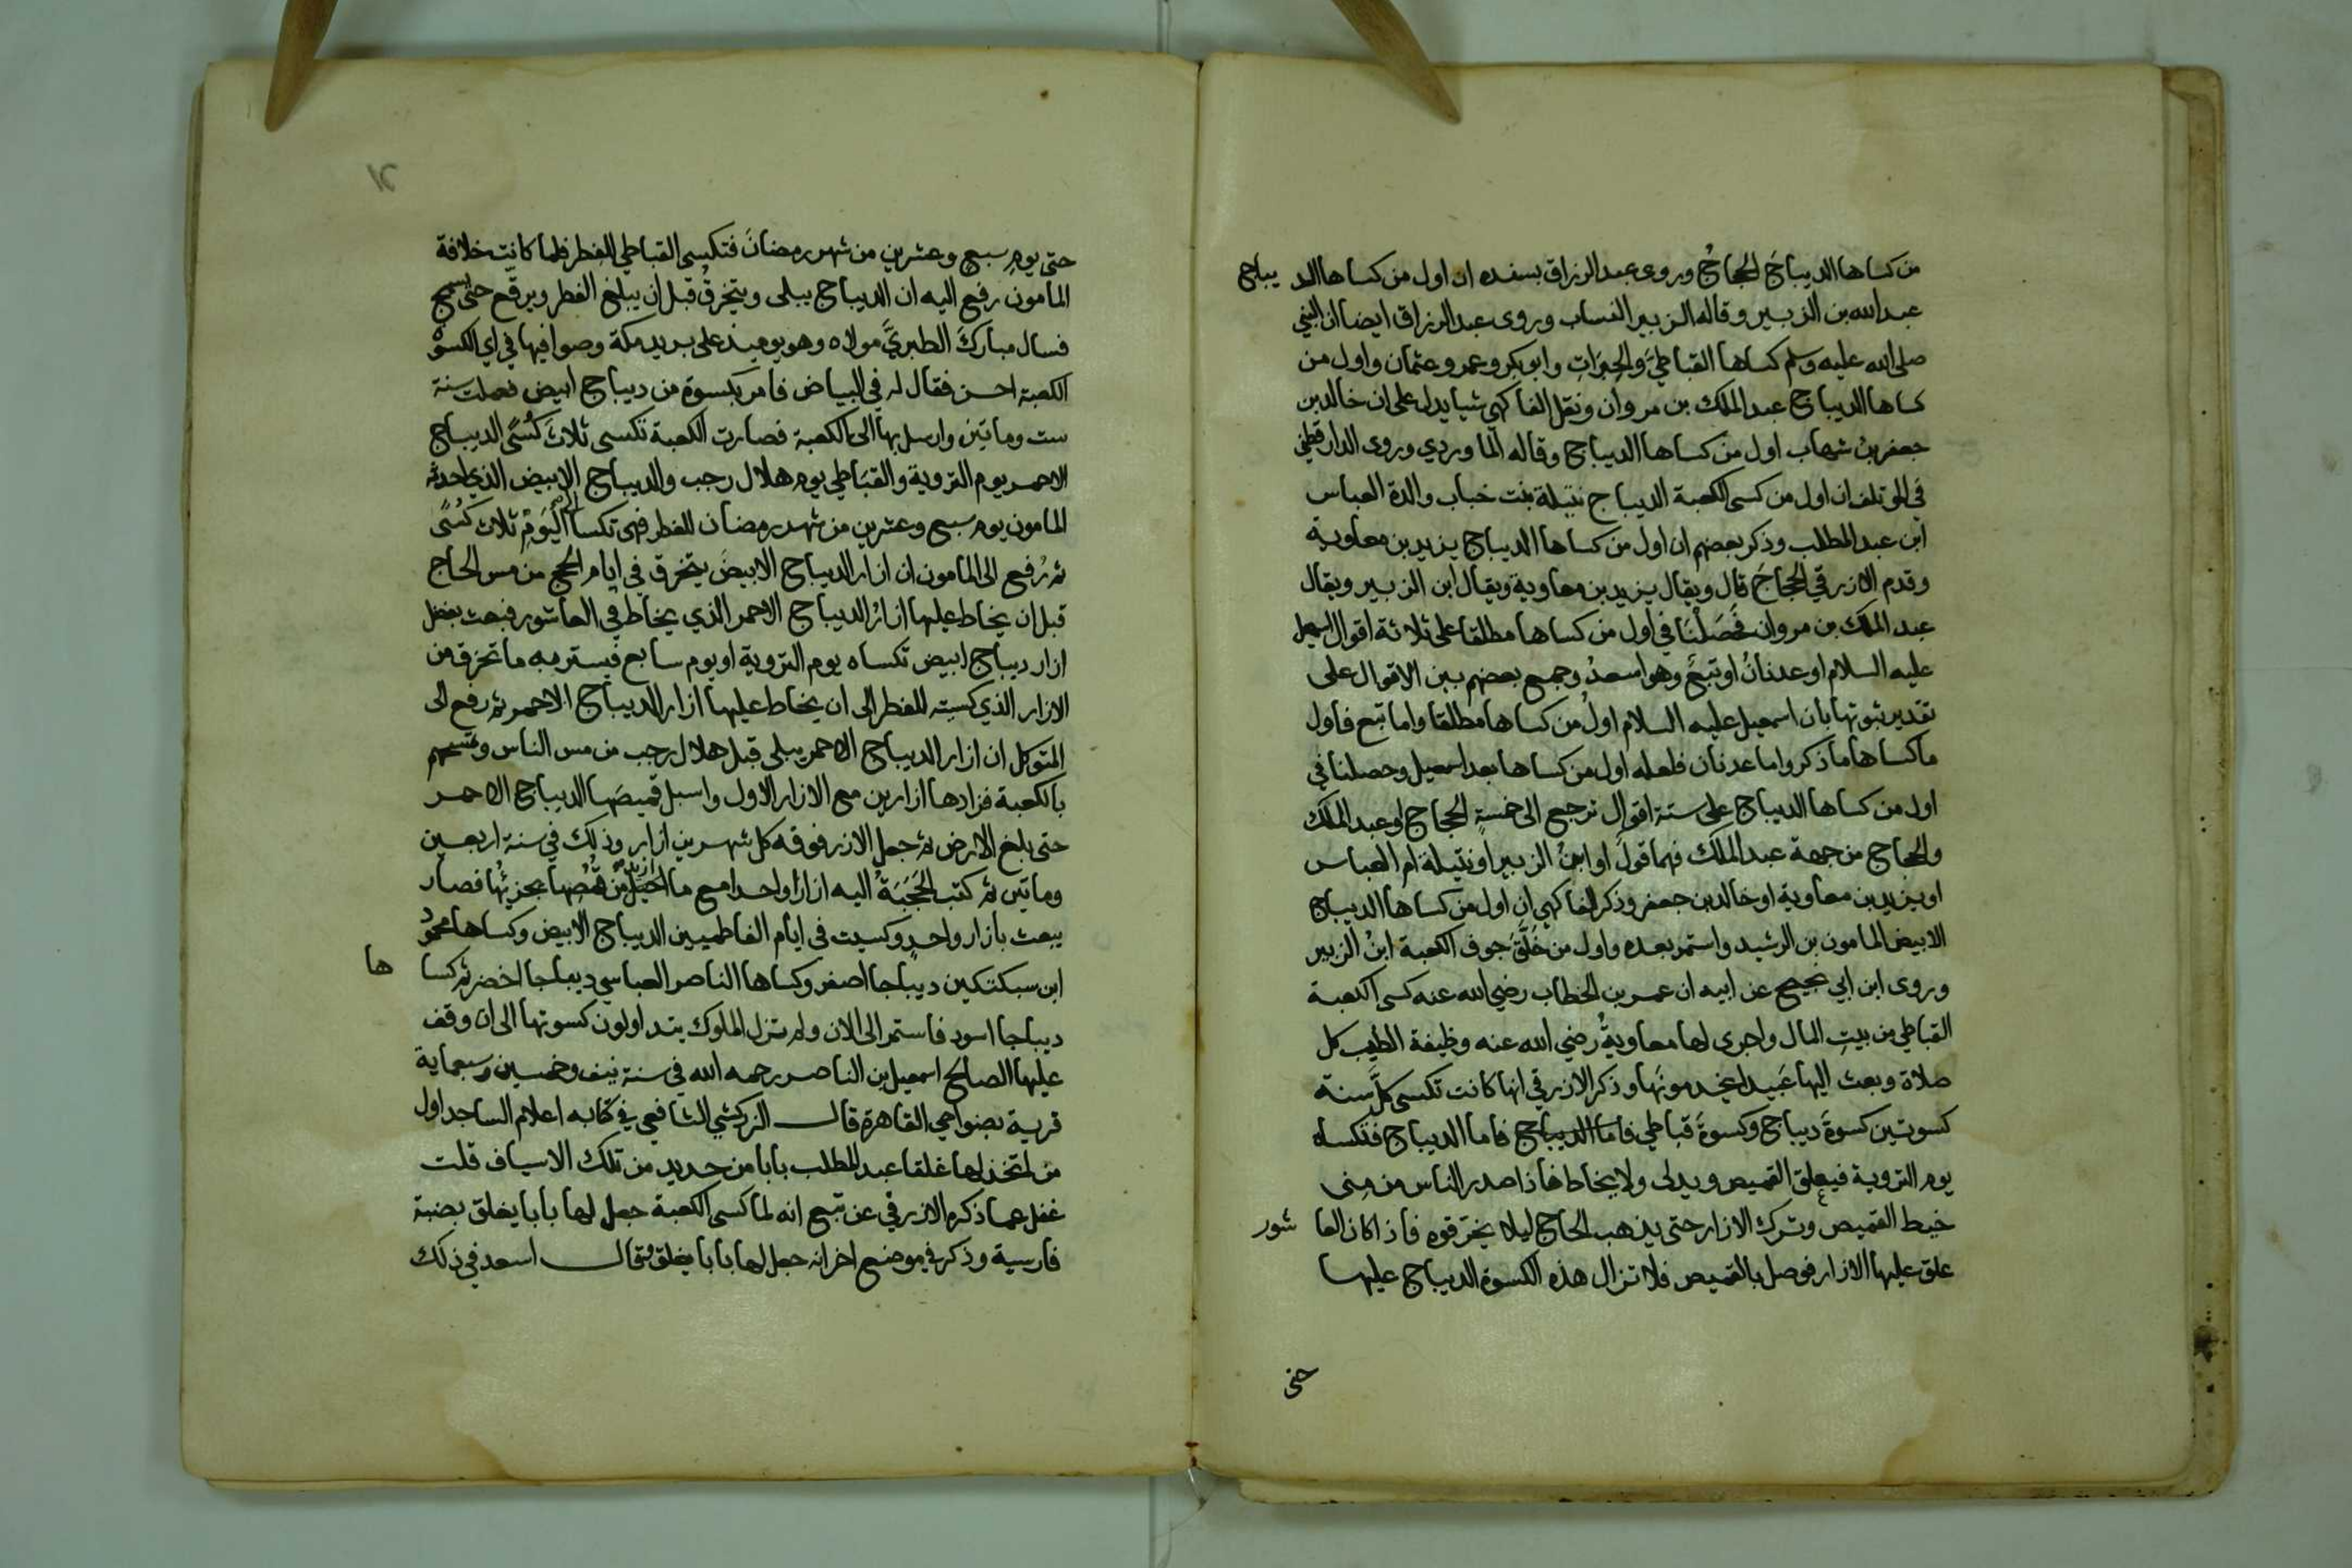 من كساها الديباج الحجاج وروى عبد الرزاق بسنده ان اول من كساها الديباج
عبد الله بن الزبير وقاله الزبير النساب وروى عبد الرزاق ايضا ان النبي
صلى الله عليه وسلم كساها القباطيَ والحِبَراتِ وابو بكر وعمر وعثمان واول من
كساها الديباج عبد الملك بن مروان ونقل الفاكهي شيا يدل على ان خالد بن
جعفر بنُ شهاب اول من كساها الديباج وقاله الماوردي وروى الدارقطني
في المؤتلف ان اول من كسى الكعبة الديباج نتيلة بنت خباب والدة العباس
ابن عبد المطلب وذكر بعضهم ان اول من كساها الديباج يزيد بن معاوية
وقدم الازرقي الحجاجَ قال ويقال يزيد بن معاوية ويقال ابن الزبير ويقال
عبد الملك بن مروان فحَصَلْنَا في اول من كساها مطلقا على ثلاثة اقوال اسمعيل
عليه السلام او عدنانُ او تبعٌ وهو اسعدُ وجمع بعضهم بين الاقوال على
تقدير ثبوتها بان اسمعيل عليه السلام اولُ من كساها مطلقا واما تبع فاول
ما كساها ما ذكر واما عدنان فلعله اول من كساها بعد اسمعيل وحصلنا في
اول من كساها الديباج على ستة اقوال ترجع الى خمسةٍ الحجاج او عبد الملك
والحجاج من جهة عبد الملك فهما قولٌ او ابنُ الزبير او نتيلة ام العباس
او يزيد بن معاوية او خالد بن جعفر وذكر الفاكهي ان اول من كساها الديباج
الابيض المامون بن الرشيد واستمر بعده واول من خَلَّقَ جوف الكعبة ابنُ الزبير
وروى ابن ابي نجيح عن ابيه ان عمر بن الخطاب رضي الله عنه كسى الكعبة
القباطي من بيت المال واجرى لها معاويةُ رضي الله عنه وظيفة الطيب كل
صلاة وبعث اليها عَبيدا يخدمونَها وذكر الازرقي انها كانت تكسى كلَّ سنة
كسوتين كسوةَ ديباج وكسوةَ قباطي فاما الديباج فاما الديباج فتكساه
يوم التروية فيعلق القميص ويدلى ولا يخاط فاذا صدر الناس من منى
خيط القميص وترك الازار حتى يذهب الحاج ليلا يخرقوه فاذا كان العاشور
علق عليها الازار فوصل بالقميص فلا تزال هذه الكسوة الديباج عليها
حتى
١٤
حتى يوم سبع وعشرين من شهر رمضانَ فتكسى القباطي للفطر فلما كانت خلافة
المامون رفع اليه ان الديباج يبلى ويتخرقُ قبل ان يبلغ الفطر ويرقع حتى يسمج
فسال مباركَ الطبريَّ مولاه وهو يوميذ على بريد مكة وصوافيها في اي الكسوة
الكعبة احسن فقال له في البياض فامر بكسوة من ديباج ابيض فعملت سنة
ست وماتين وارسل بها الى الكعبة فصارت الكعبة تكسى ثلاثَ كُسًى الديباج
الاحمر يوم التروية والقبَاطي يوم هلال رجب والديباج الابيض الذي احدثه
المامون يوم سبع وعشرين من شهر رمضان للفطر فهي تكسا الى اليَومْ ثلاث كسًى
ثم رُفع الى المامون ان ازار الديباج الابيضَ يتخرق في ايام الحج من مس الحاج
قبل ان يخاط عليها ازارُ الديباج الاحمر الذي يخاط في العاشور فبعث بفضل
ازار ديباج ابيض تكساه يوم التروية او يوم سابع فيستر به ما تخرق من
الازار الذي كسيته للفطر الى ان يخاط عليها ازار الديباج الاحمر ثم رفع الى
المتوكل ان ازار الديباج الاحمر يبلى قبل هلال رجب من مس الناس وتمسحهم
بالكعبة فزادها ازارين مع الازار الاول واسبل قميصَها الديباج الاحمر
حتى بلغ الارض ثم جعل الازر فوقه كل شهرين ازار وذلك في سنة اربعين
وماتين ثم كتب الحَجَبَةُ اليه ازارا واحدا مع ما اذيل من قمصها يجزيُها فصار
يبعث بازار واحدٍ وكسيت في ايام الفاطميين الديباج الابيض وكساها محمود
ابن سبكتكين ديباجا اصفر وكساها الناصر العباسي ديباجا اخضر ثم كساها
ديباجا اسود فاستمر الى الان ولم تزل الملوك يتداولون كسوتها الى ان وقف
عليها الصالح اسمعيل بن الناصر رحمه الله في سنة نيف وخمسين وسبعماية
قرية بضواحي القاهرة قال الزركشي الشافعي في كتابه اعلام الساجد اول
من اتخذ لها غلقا عبد المطلب بابا من حديد من تلك الاسياف قلت
غفل عما ذكره الازرقي عن تبع انه لما كسى الكعبة جعل لها بابا يغلق بضبة
فارسية وذكر في موضع اخر انه جعل لها بابا يغلق وقال اسعد في ذلك